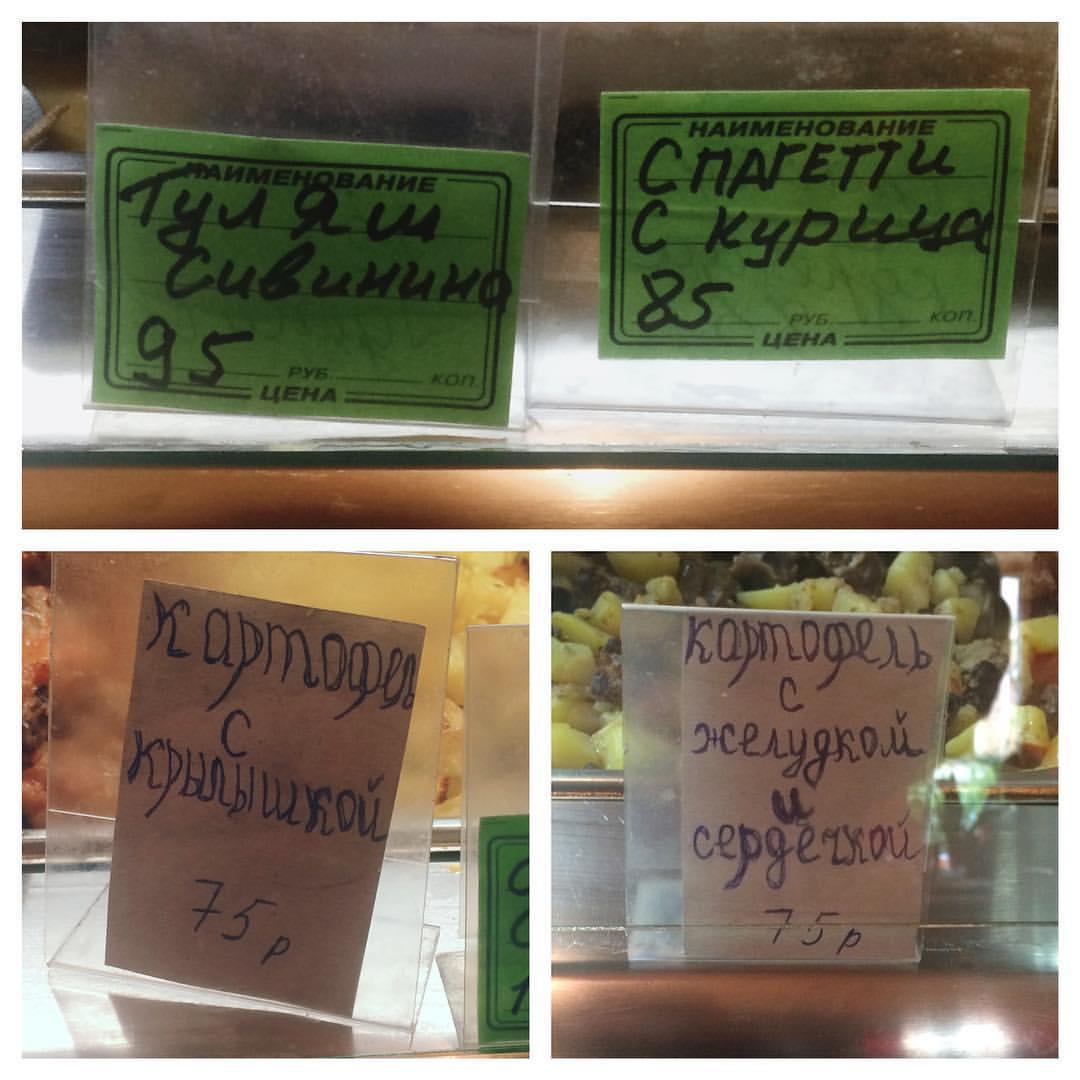 НАИМЕНОВАНИЕ
Гуляш
Сивинина
95
РУБ. КОП.
ЦЕНА
НАИМЕНОВАНИЕ
Спагетти
С курица
85
РУБ. КОП.
ЦЕНА
картофель
с
крылышкой
75р
картофель
с
желудкой
и
сердечкой
75р